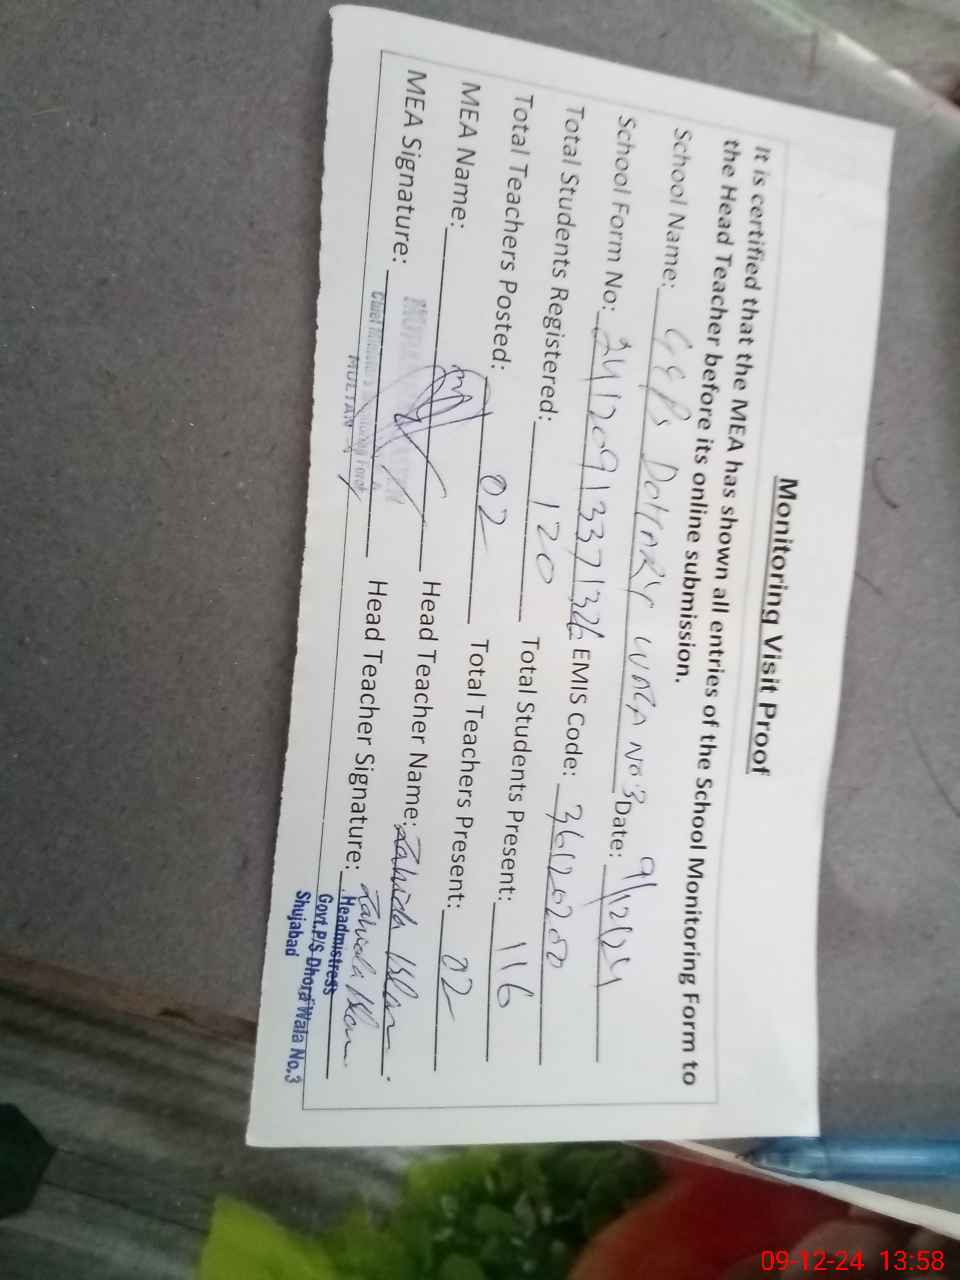 Monitoring Visit Proof
It is certified that the MEA has shown all entries of the School Monitoring Form to
the Head Teacher before its online submission.
School Name: GGPS DOHARY WALA NO.3 Date: 9/12/24
School Form No: 24120913371326 EMIS Code: 36120200
Total Students Registered: 120 Total Students Present: 116
Total Teachers Posted: 02 Total Teachers Present: 02
MEA Name: Head Teacher Name: Zahida Islam
MEA Signature: Head Teacher Signature: Zahida Islam
MULTAN
Headmistress
Govt.P/S Dhora Wala No,3
Shujabad
09-12-24 13:58